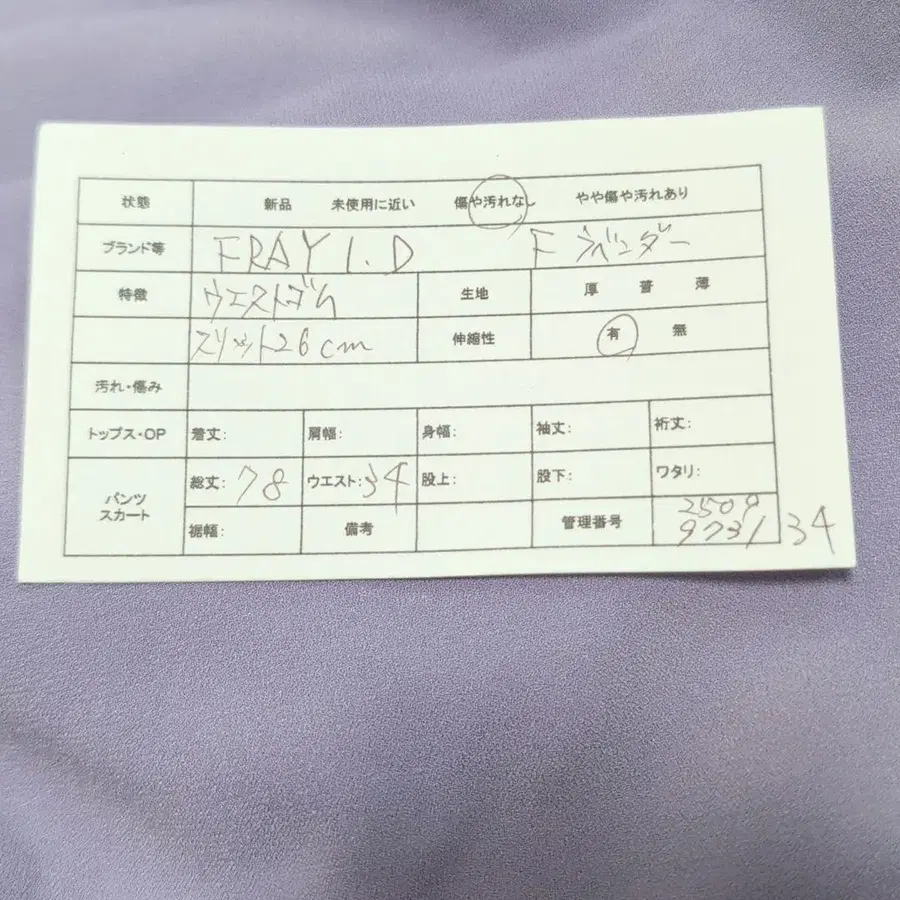 状態 新品 未使用に近い 傷や汚れなし やや傷や汚れあり
ブランド等 FRAY I.D F ラベンダー
特徴 ウエストゴム 生地 厚 普 薄
スリット26cm 伸縮性 有 無
汚れ・傷み
トップス・OP 着丈: 肩幅: 身幅: 袖丈: 裄丈:
パンツ スカート 総丈: 78 ウエスト: 34 股上: 股下: ワタリ:
裾幅: 備考 管理番号 2509
9731 34